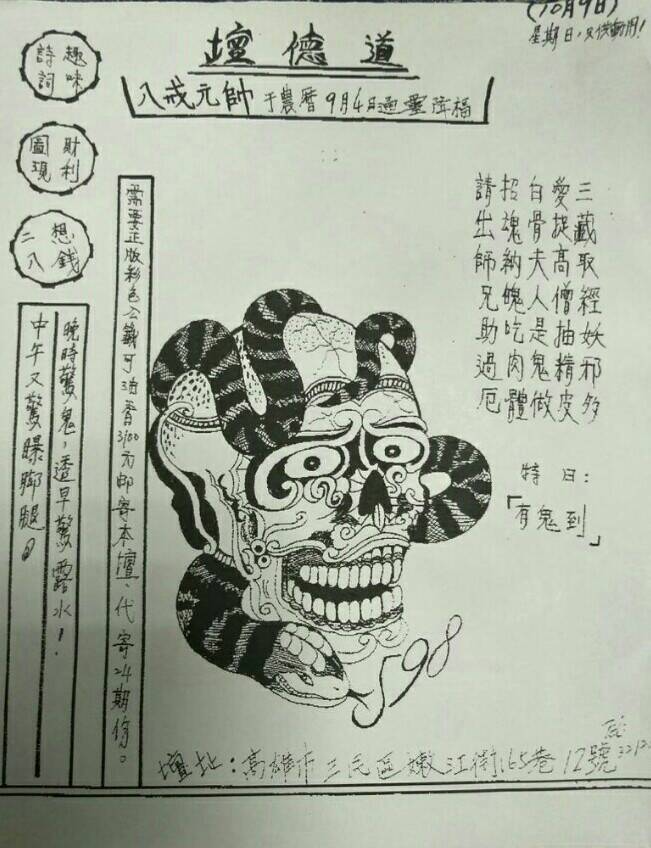 (10月9日)
星期日,
道德壇
八戒元帥 于農曆9月4日通靈降福
趣味詩詞
財利圖現
想錢二八
三藏取經妖邪多
愛捉高僧抽精皮
白骨夫人是鬼做
招魂納魄吃肉體
請出師兄助過厄
特曰:
「有鬼到」
需要正版彩色公籤可油香3100元郵寄本壇、代寄24期份。
晚時驚鬼,透早驚露水!
中午又驚曝腳腿。
598
壇址:高雄市三民區嫩江街165巷12號